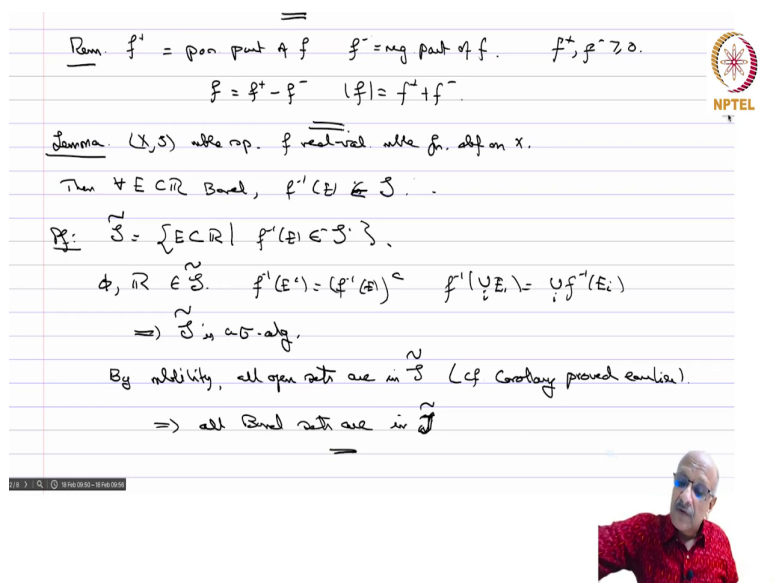 Rem. f⁺ = pos part of f f⁻ = neg part of f. f⁺, f⁻ ≥ 0.
f = f⁺ - f⁻ |f| = f⁺ + f⁻.
NPTEL
Lemma. (X, S) mble sp. f real-val. mble fn. def on X.
Then ∀ E ⊂ ℝ Borel, f⁻¹(E) ∈ S.
Pf: S̃ = {E ⊂ ℝ | f⁻¹(E) ∈ S}.
ϕ, ℝ ∈ S̃. f⁻¹(Eᶜ) = (f⁻¹(E))ᶜ f⁻¹(∪ᵢEᵢ) = ∪ᵢ f⁻¹(Eᵢ)
⇒ S̃ is a σ-alg.
By mbility, all open sets are in S̃ (cf Corollary proved earlier).
⇒ all Borel sets are in S̃
2/8 18 Feb 09:50 – 18 Feb 09:56